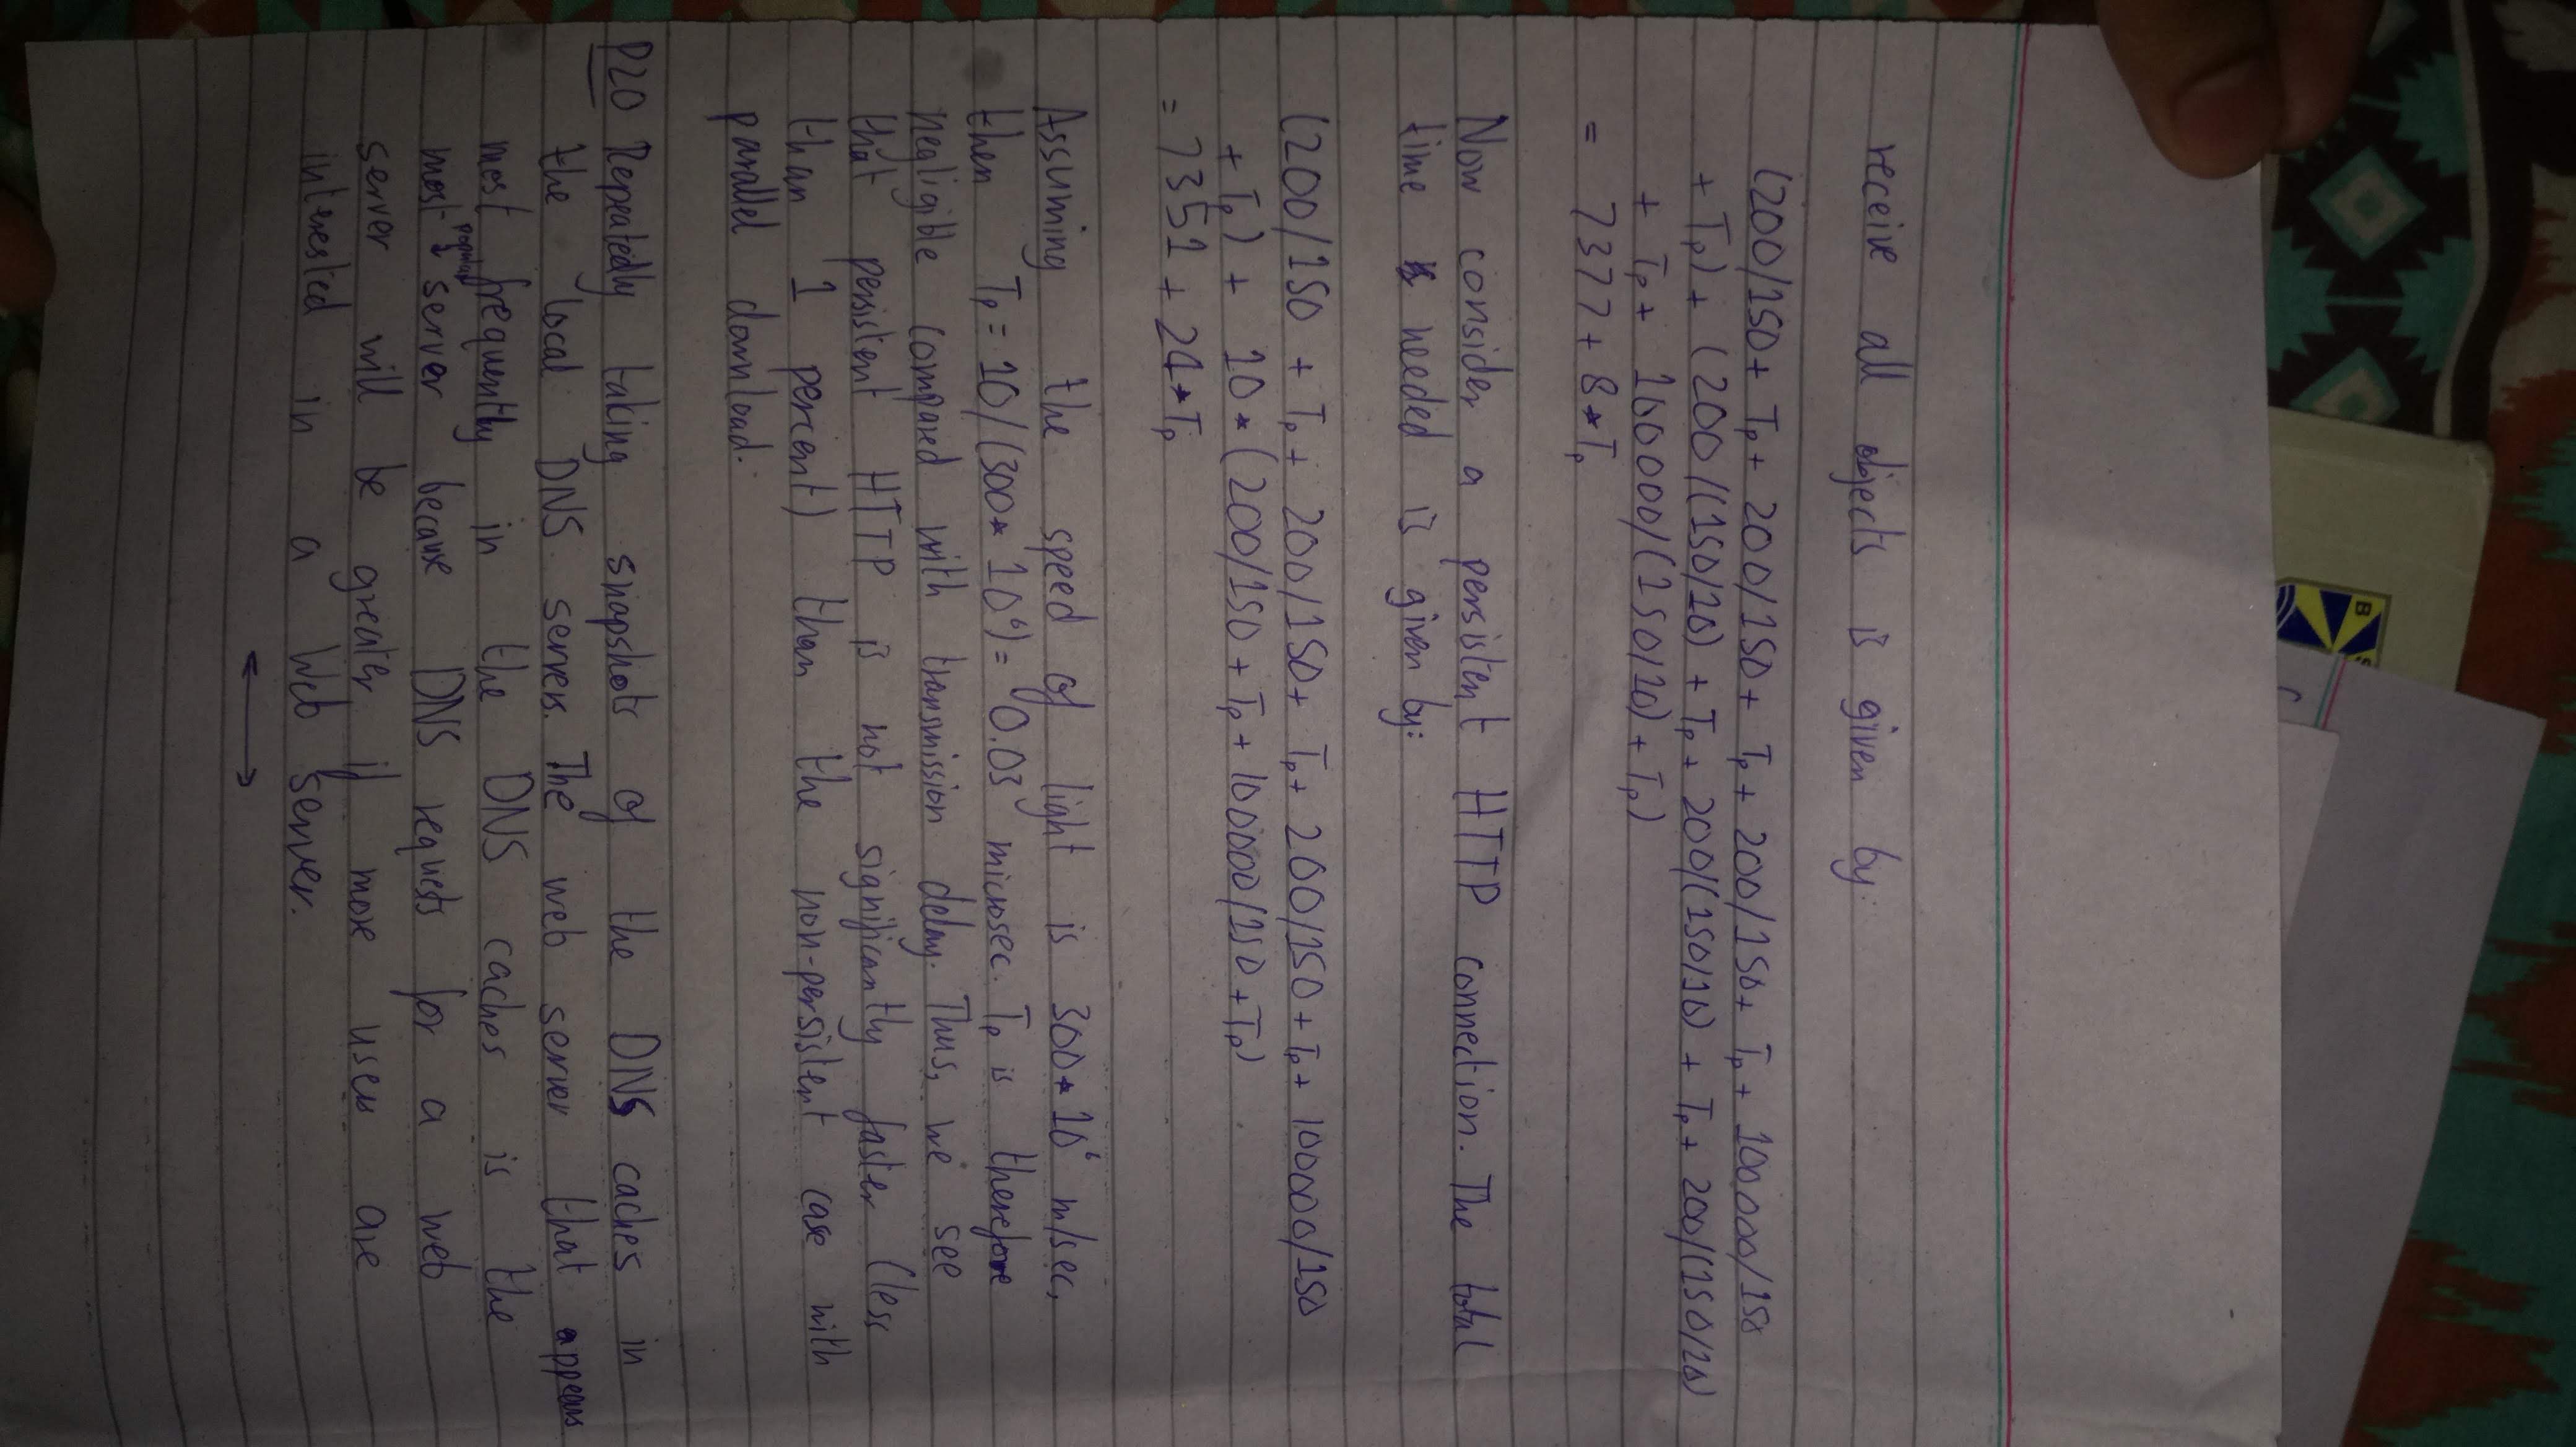 B S
C
receive all objects is given by:
(200/150+ Tp + 200/150+ Tp + 200/150+ Tp + 100000/150
+ Tp) + (200/(150/10) + Tp + 200/(150/10) + Tp + 200/(150/10)
+ Tp + 100000/(150/10) + Tp)
= 7377 + 8*Tp
Now consider a persistent HTTP connection. The total
time needed is given by:
(200/150 + Tp + 200/150+ Tp + 200/150 + Tp + 100000/150
+ Tp) + 10*(200/150 + Tp + 100000/150 + Tp)
= 7351 + 24*Tp
Assuming the speed of light is 300*10⁶ m/sec,
then Tp = 10/(300*10⁶) = 0.03 microsec. Tp is therefore
negligible compared with transmission delay. Thus, we see
that persistent HTTP is not significantly faster (less
than 1 percent) than the non-persistent case with
parallel download.
P20 Repeatedly taking snapshots of the DNS caches in
the local DNS servers. The web server that appears
most frequently in the DNS caches is the
most popular server because DNS requests for a web
server will be greater if more users are
interested in a Web server.